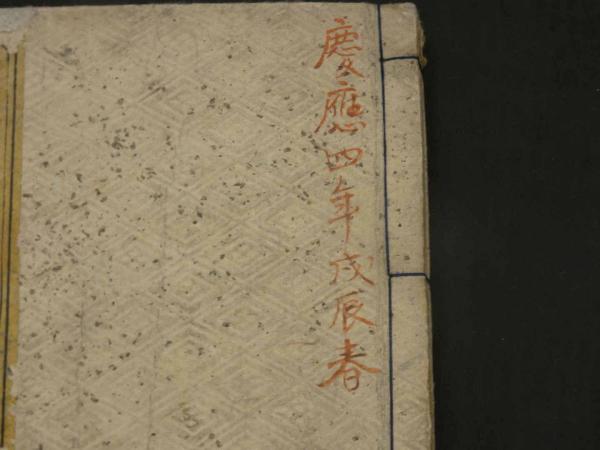 慶應四年戊辰春